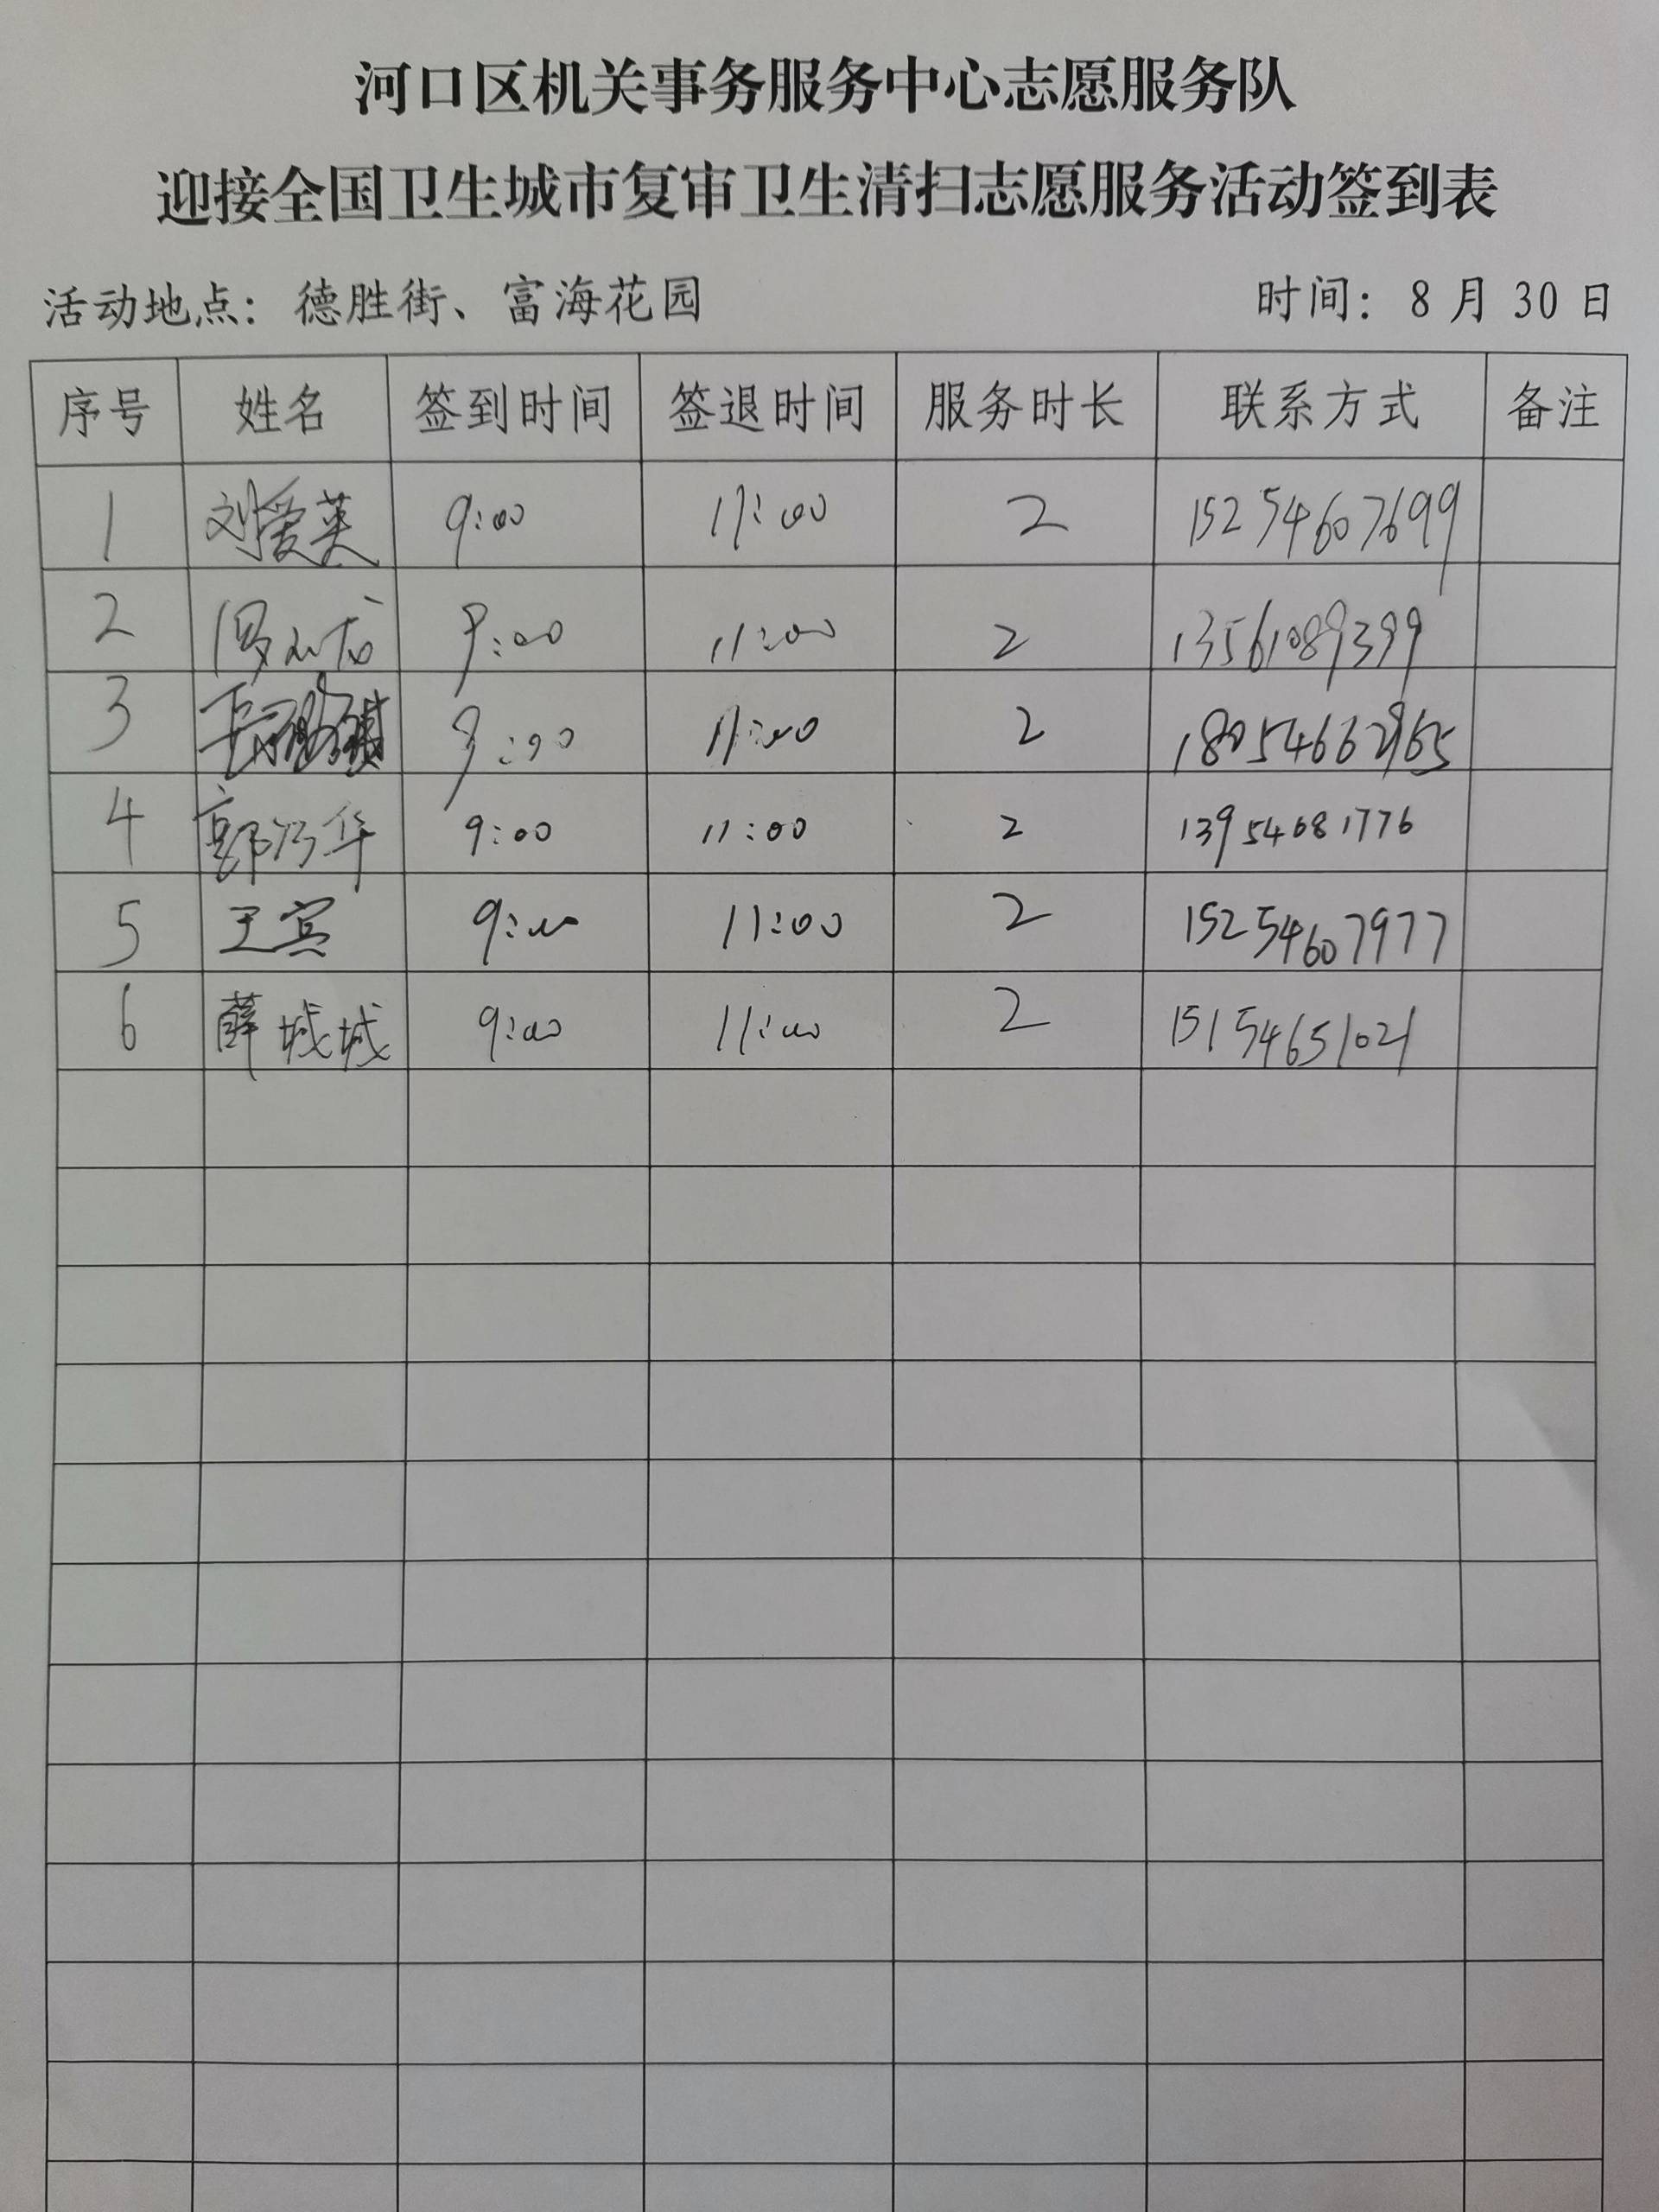 河口区机关事务服务中心志愿服务队
迎接全国卫生城市复审卫生清扫志愿服务活动签到表
活动地点：德胜街、富海花园 时间：8月30日
序号 姓名 签到时间 签退时间 服务时长 联系方式 备注
1 刘爱英 9:00 11:00 2 15254607699
2 9:00 11:00 2 13561089399
3 9:00 11:00 2
4 郭乃华 9:00 11:00 2 13954681776
5 王宾 9:00 11:00 2 15254607977
6 薛城城 9:00 11:00 2 15154651021